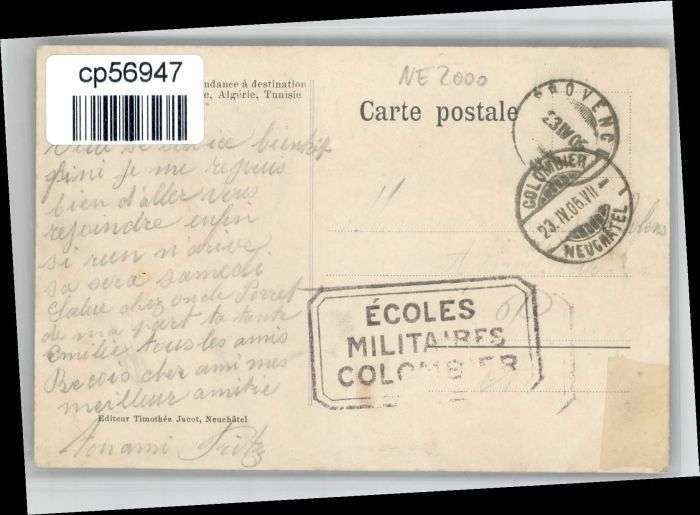 cp56947
ndance à destination
e, Algérie, Tunisie
NE 2000
Carte postale
PROVENCE
23 IV 05
COLOMBIER
23.IV.05.VII
NEUCHÂTEL
service bientôt
fini je me rejouis
bien d'aller vous
rejoindre enfin
si rien n'arive
sa sera samedi
Salue chez oncle Perret
de ma part ta tante
Emilie tous les amis
Recois cher ami mes
meilleur amitie
Editeur Timothée Jacot, Neuchâtel
Ton ami Fritz
ÉCOLES
MILITAIRES
COLOMBIER